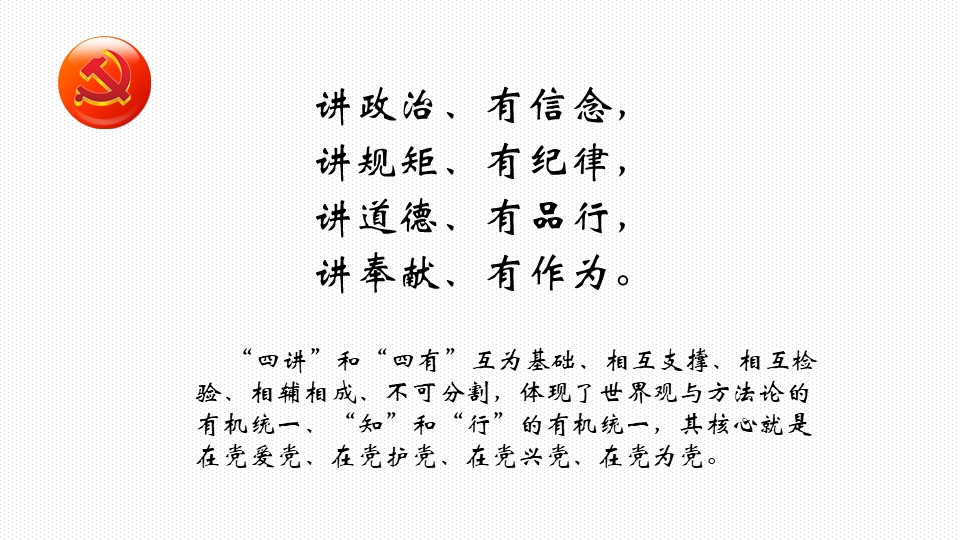 讲政治、有信念，
讲规矩、有纪律，
讲道德、有品行，
讲奉献、有作为。
“四讲”和“四有”互为基础、相互支撑、相互检
验、相辅相成、不可分割，体现了世界观与方法论的
有机统一、“知”和“行”的有机统一，其核心就是
在党爱党、在党护党、在党兴党、在党为党。